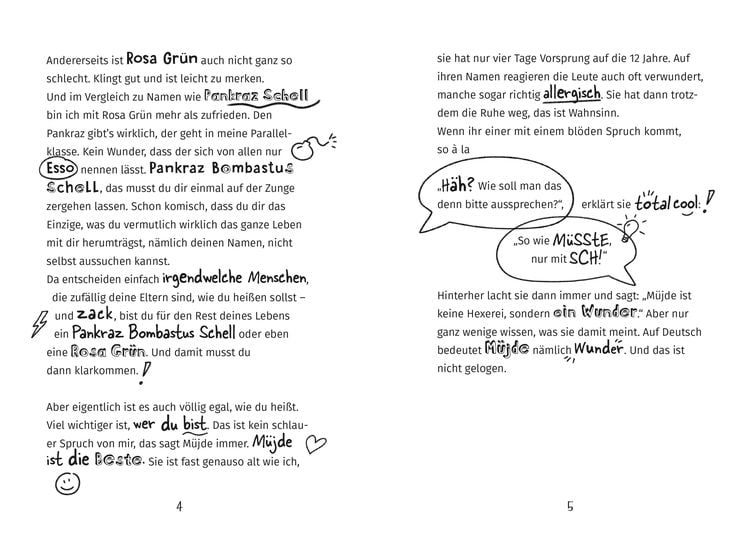 Andererseits ist Rosa Grün auch nicht ganz so
schlecht. Klingt gut und ist leicht zu merken.
Und im Vergleich zu Namen wie Pankraz Schell
bin ich mit Rosa Grün mehr als zufrieden. Den
Pankraz gibt's wirklich, der geht in meine Parallel-
klasse. Kein Wunder, dass der sich von allen nur
Esso nennen lässt. Pankraz Bombastus
Schell, das musst du dir einmal auf der Zunge
zergehen lassen. Schon komisch, dass du dir das
Einzige, was du vermutlich wirklich das ganze Leben
mit dir herumträgst, nämlich deinen Namen, nicht
selbst aussuchen kannst.
Da entscheiden einfach irgendwelche Menschen,
die zufällig deine Eltern sind, wie du heißen sollst –
und zack, bist du für den Rest deines Lebens
ein Pankraz Bombastus Schell oder eben
eine Rosa Grün. Und damit musst du
dann klarkommen.!
Aber eigentlich ist es auch völlig egal, wie du heißt.
Viel wichtiger ist, wer du bist. Das ist kein schlau-
er Spruch von mir, das sagt Müjde immer. Müjde
ist die Beste. Sie ist fast genauso alt wie ich,
4
sie hat nur vier Tage Vorsprung auf die 12 Jahre. Auf
ihren Namen reagieren die Leute auch oft verwundert,
manche sogar richtig allergisch. Sie hat dann trotz-
dem die Ruhe weg, das ist Wahnsinn.
Wenn ihr einer mit einem blöden Spruch kommt,
so à la
„Häh? Wie soll man das
denn bitte aussprechen?“, erklärt sie total cool:!
„So wie MüSStE,
nur mit SCH!“
Hinterher lacht sie dann immer und sagt: „Müjde ist
keine Hexerei, sondern ein Wunder.“ Aber nur
ganz wenige wissen, was sie damit meint. Auf Deutsch
bedeutet Müjde nämlich Wunder. Und das ist
nicht gelogen.
5